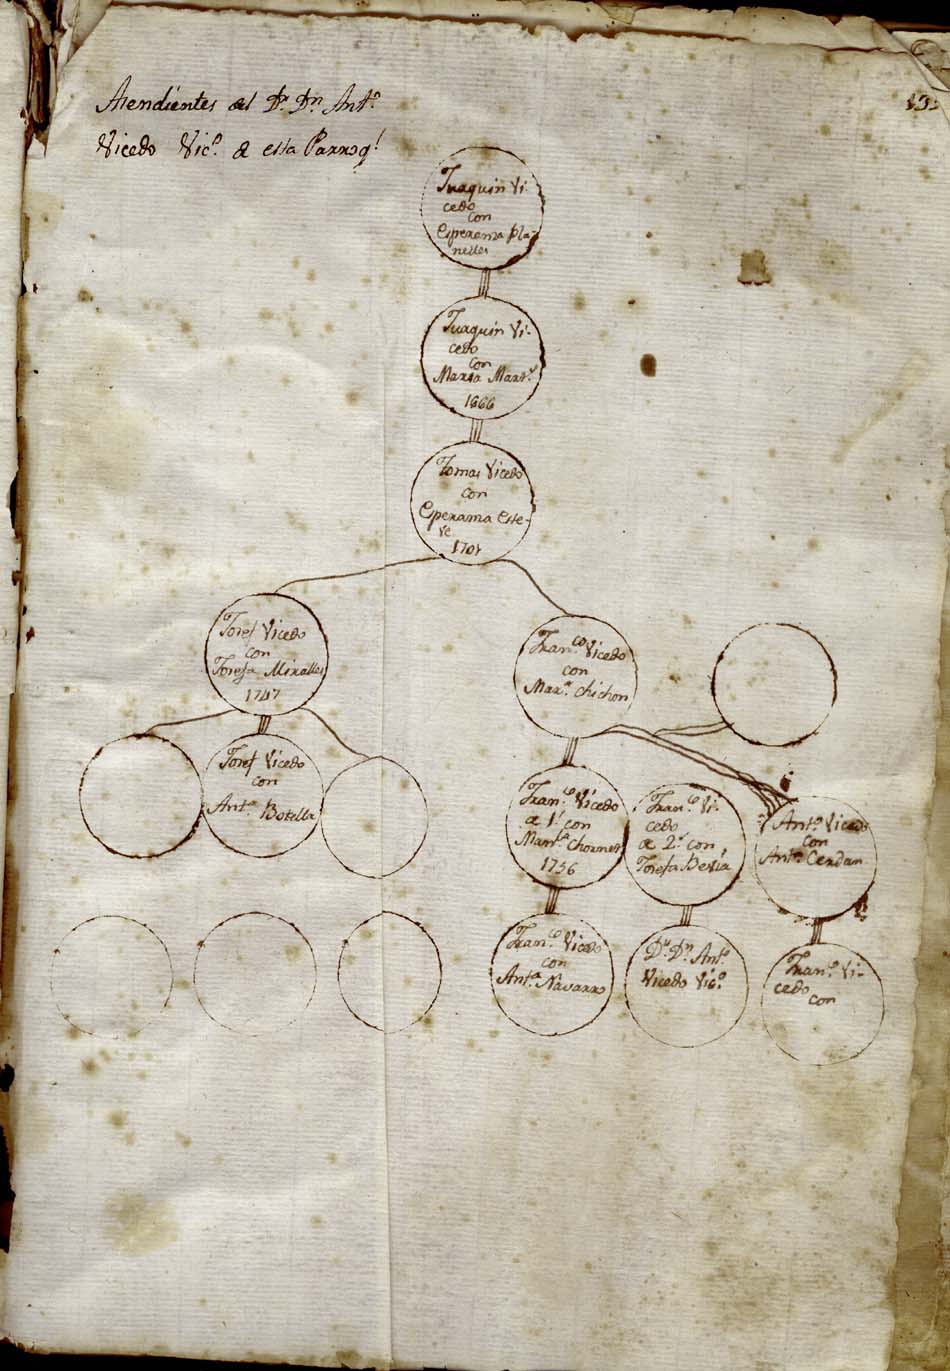 Asendientes del Dr. Dn. Anto.
Vicedo Vico. de esta Parroql.
Juaquin Vi-
cedo
con
Esperansa Pla-
nelles
Juaquin Vi-
cedo
con
Maria Mart.
1666
Tomas Vicedo
con
Esperansa Este-
ve
1701
Josef Vicedo
con
Josefa Miralles
1747
Franco. Vicedo
con
Mara. Chichon
Josef Vicedo
con
Anta. Botella
Franco. Vicedo
de 1º con
Manla. Chornet
1756
Franco. Vi-
cedo
de 2º con
Josefa Bevia
Anto. Vicedo
con
Anta. Cerdan
Franco. Vicedo
con
Anta. Navarro
Dr. Dn. Anto.
Vicedo Vico.
Franco. Vi-
cedo
con